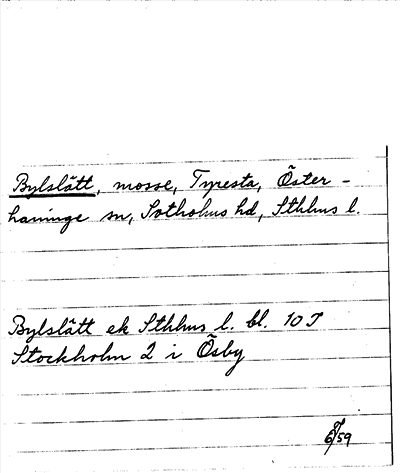 Bylslätt, mosse, Tyresta, Öster-
haninge sn, Sotholms hd, Sthlms l.
Bylslätt ek Sthlms l. bl. 10 J
Stockholm 2 i Ösby
59